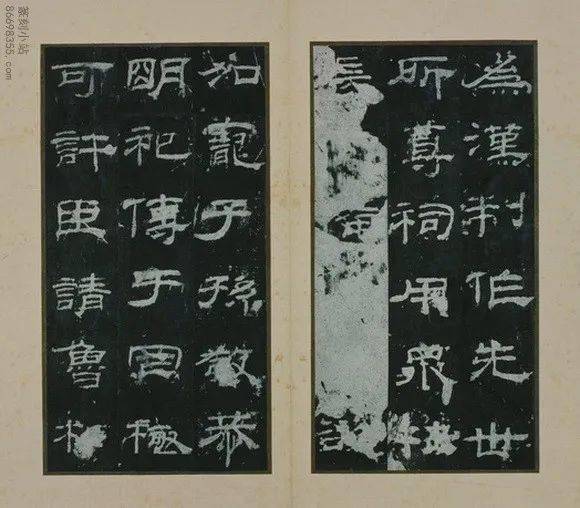 爲漢制作先世
所尊祠用衆牲
長
加寵子孫敬恭
明祀傳于罔極
可許臣請魯相
篆刻小站
86698355.com